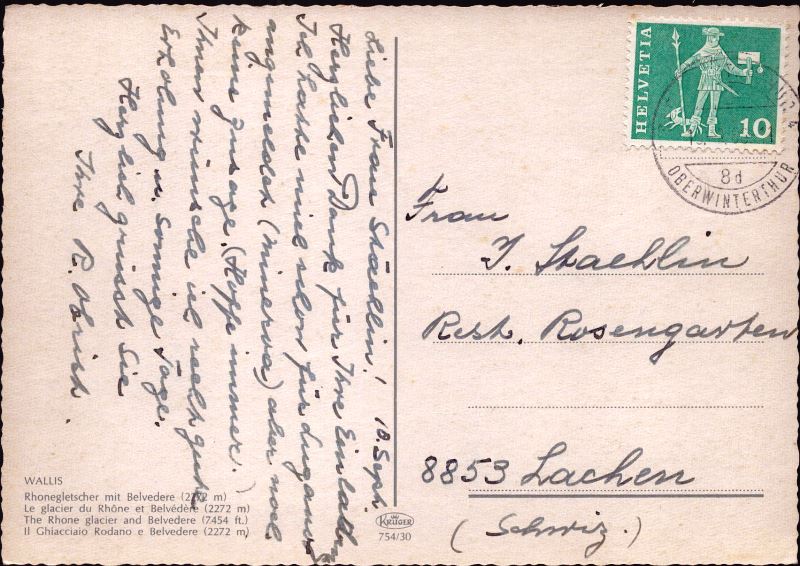 Liebe Frau Staehlin! 10. Sept.
Herzlichen Dank für Ihre Einladung
Ich hatte mich schon für Lugano
angemeldet (Minerva) aber noch
keine Zusage. (Hoffe immer.)
Ihnen wünsche ich recht gute
Erholung u. sonnige Tage.
Herzlich grüsst Sie
Ihre R.
HELVETIA
10
8d
OBERWINTERTHUR
Frau
J. Staehlin
Rest. Rosengarten
8853 Lachen
(Schwiz.)
WALLIS
Rhonegletscher mit Belvedere (2272 m)
Le glacier du Rhône et Belvédère (2272 m)
The Rhone glacier and Belvedere (7454 ft.)
Il Ghiacciaio Rodano e Belvedere (2272 m)
KRÜGER
754/30